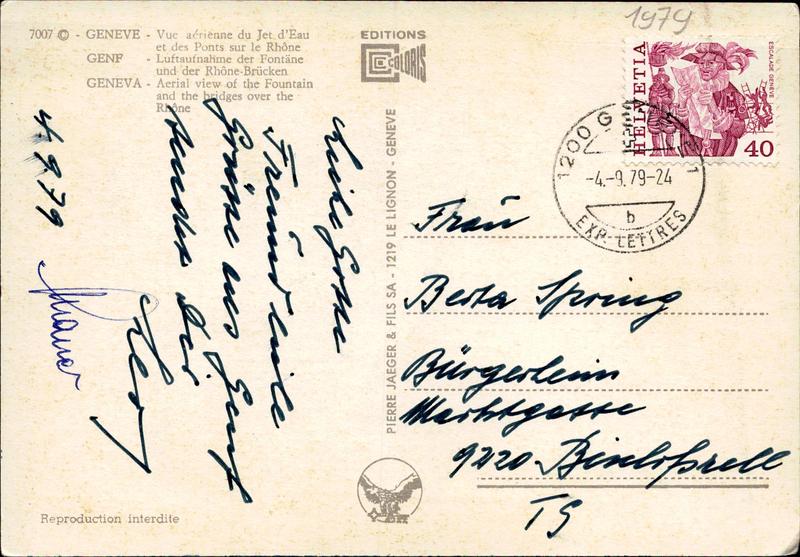 1979
7007 © - GENEVE - Vue aérienne du Jet d'Eau
et des Ponts sur le Rhône
GENF - Luftaufnahme der Fontäne
und der Rhône-Brücken
GENEVA - Aerial view of the Fountain
and the bridges over the
Rhône
EDITIONS
COLORIS
HELVETIA
ESCALADE GENEVE
40
1200 G
1
-4.-9.79-24
b
EXP. LETTRES
4.9.79
Liebe Gotte
Freundliche
Grüsse aus Genf
sendet Dir
PIERRE JAEGER & FILS SA - 1219 LE LIGNON - GENEVE
Frau
Berta Spring
Bürgerheim
Marktgasse
9220 Bischofszell
TG
Reproduction interdite